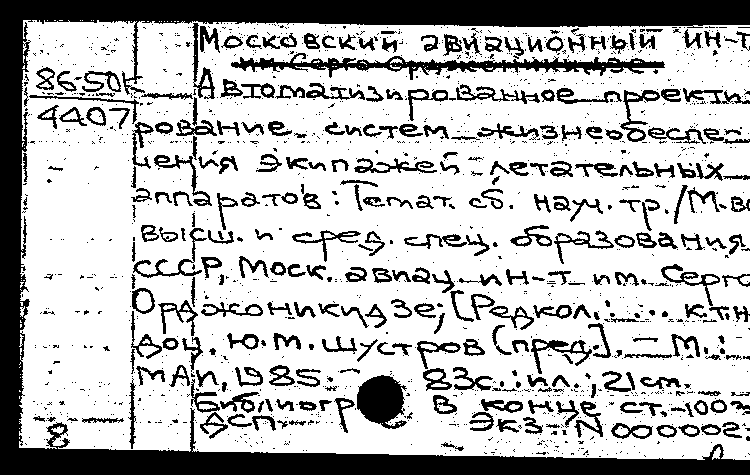 Московский авиационный ин-т
им. Серго Орджоникидзе.
86-50К
Автоматизированное проекти-
4407
рование систем жизнеобеспе-
чения экипажей летательных
аппаратов: Темат. сб. науч. тр./М-во
высш. и сред. спец. образования
СССР, Моск. авиац. ин-т им. Серго
Орджоникидзе; [Редкол.: ... к.т.н
доц. Ю.М. Шустров (пред.]. — М.:
МАИ, 1985. - 83с.: ил.; 21см.
Библиогр в конце ст. - 100э
ДСП Экз. N 000002:
8